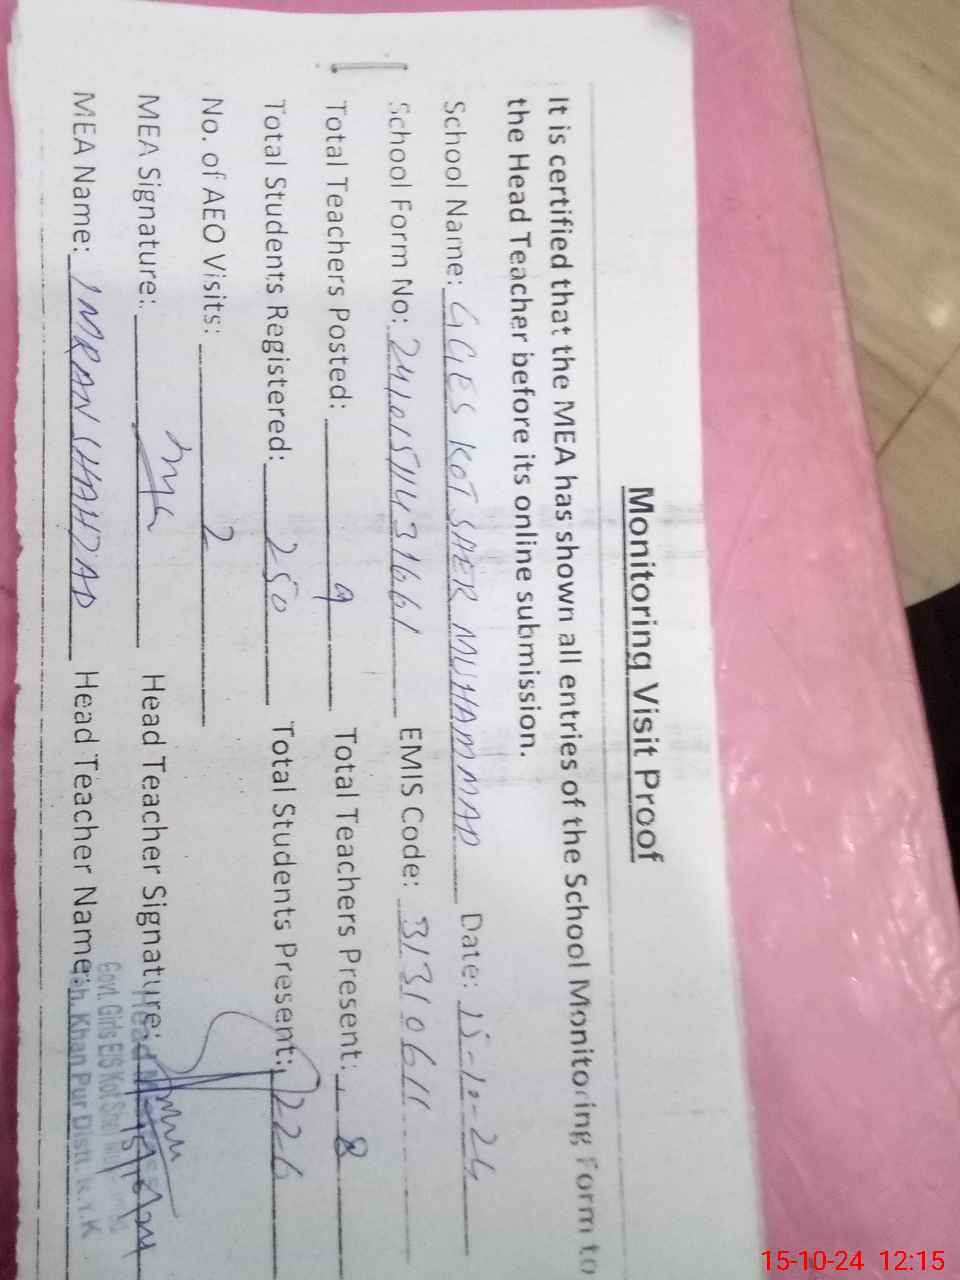 Monitoring Visit Proof
It is certified that the MEA has shown all entries of the School Monitoring Form to
the Head Teacher before its online submission.
School Name: GGES KOT SHER MUHAMMAD Date: 15-10-24
School Form No: EMIS Code: 31310611
Total Teachers Posted: 9 Total Teachers Present: 8
Total Students Registered: 250 Total Students Present: 226
No. of AEO Visits: 2
MEA Signature: Head Teacher Signature:
Head
Govt. Girls E/S Kot Sher
MEA Name: IMRAN SHAHDAD Head Teacher Name:
Teh. Khan Pur Distt. R.Y.K
15-10-24 12:15